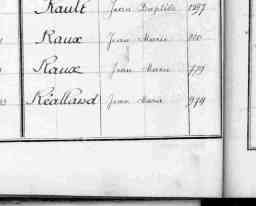 Rault Jean Baptiste 1297
Raux Jean Marie
Raux Jean Marie 779
Réalland Jean Marie 979